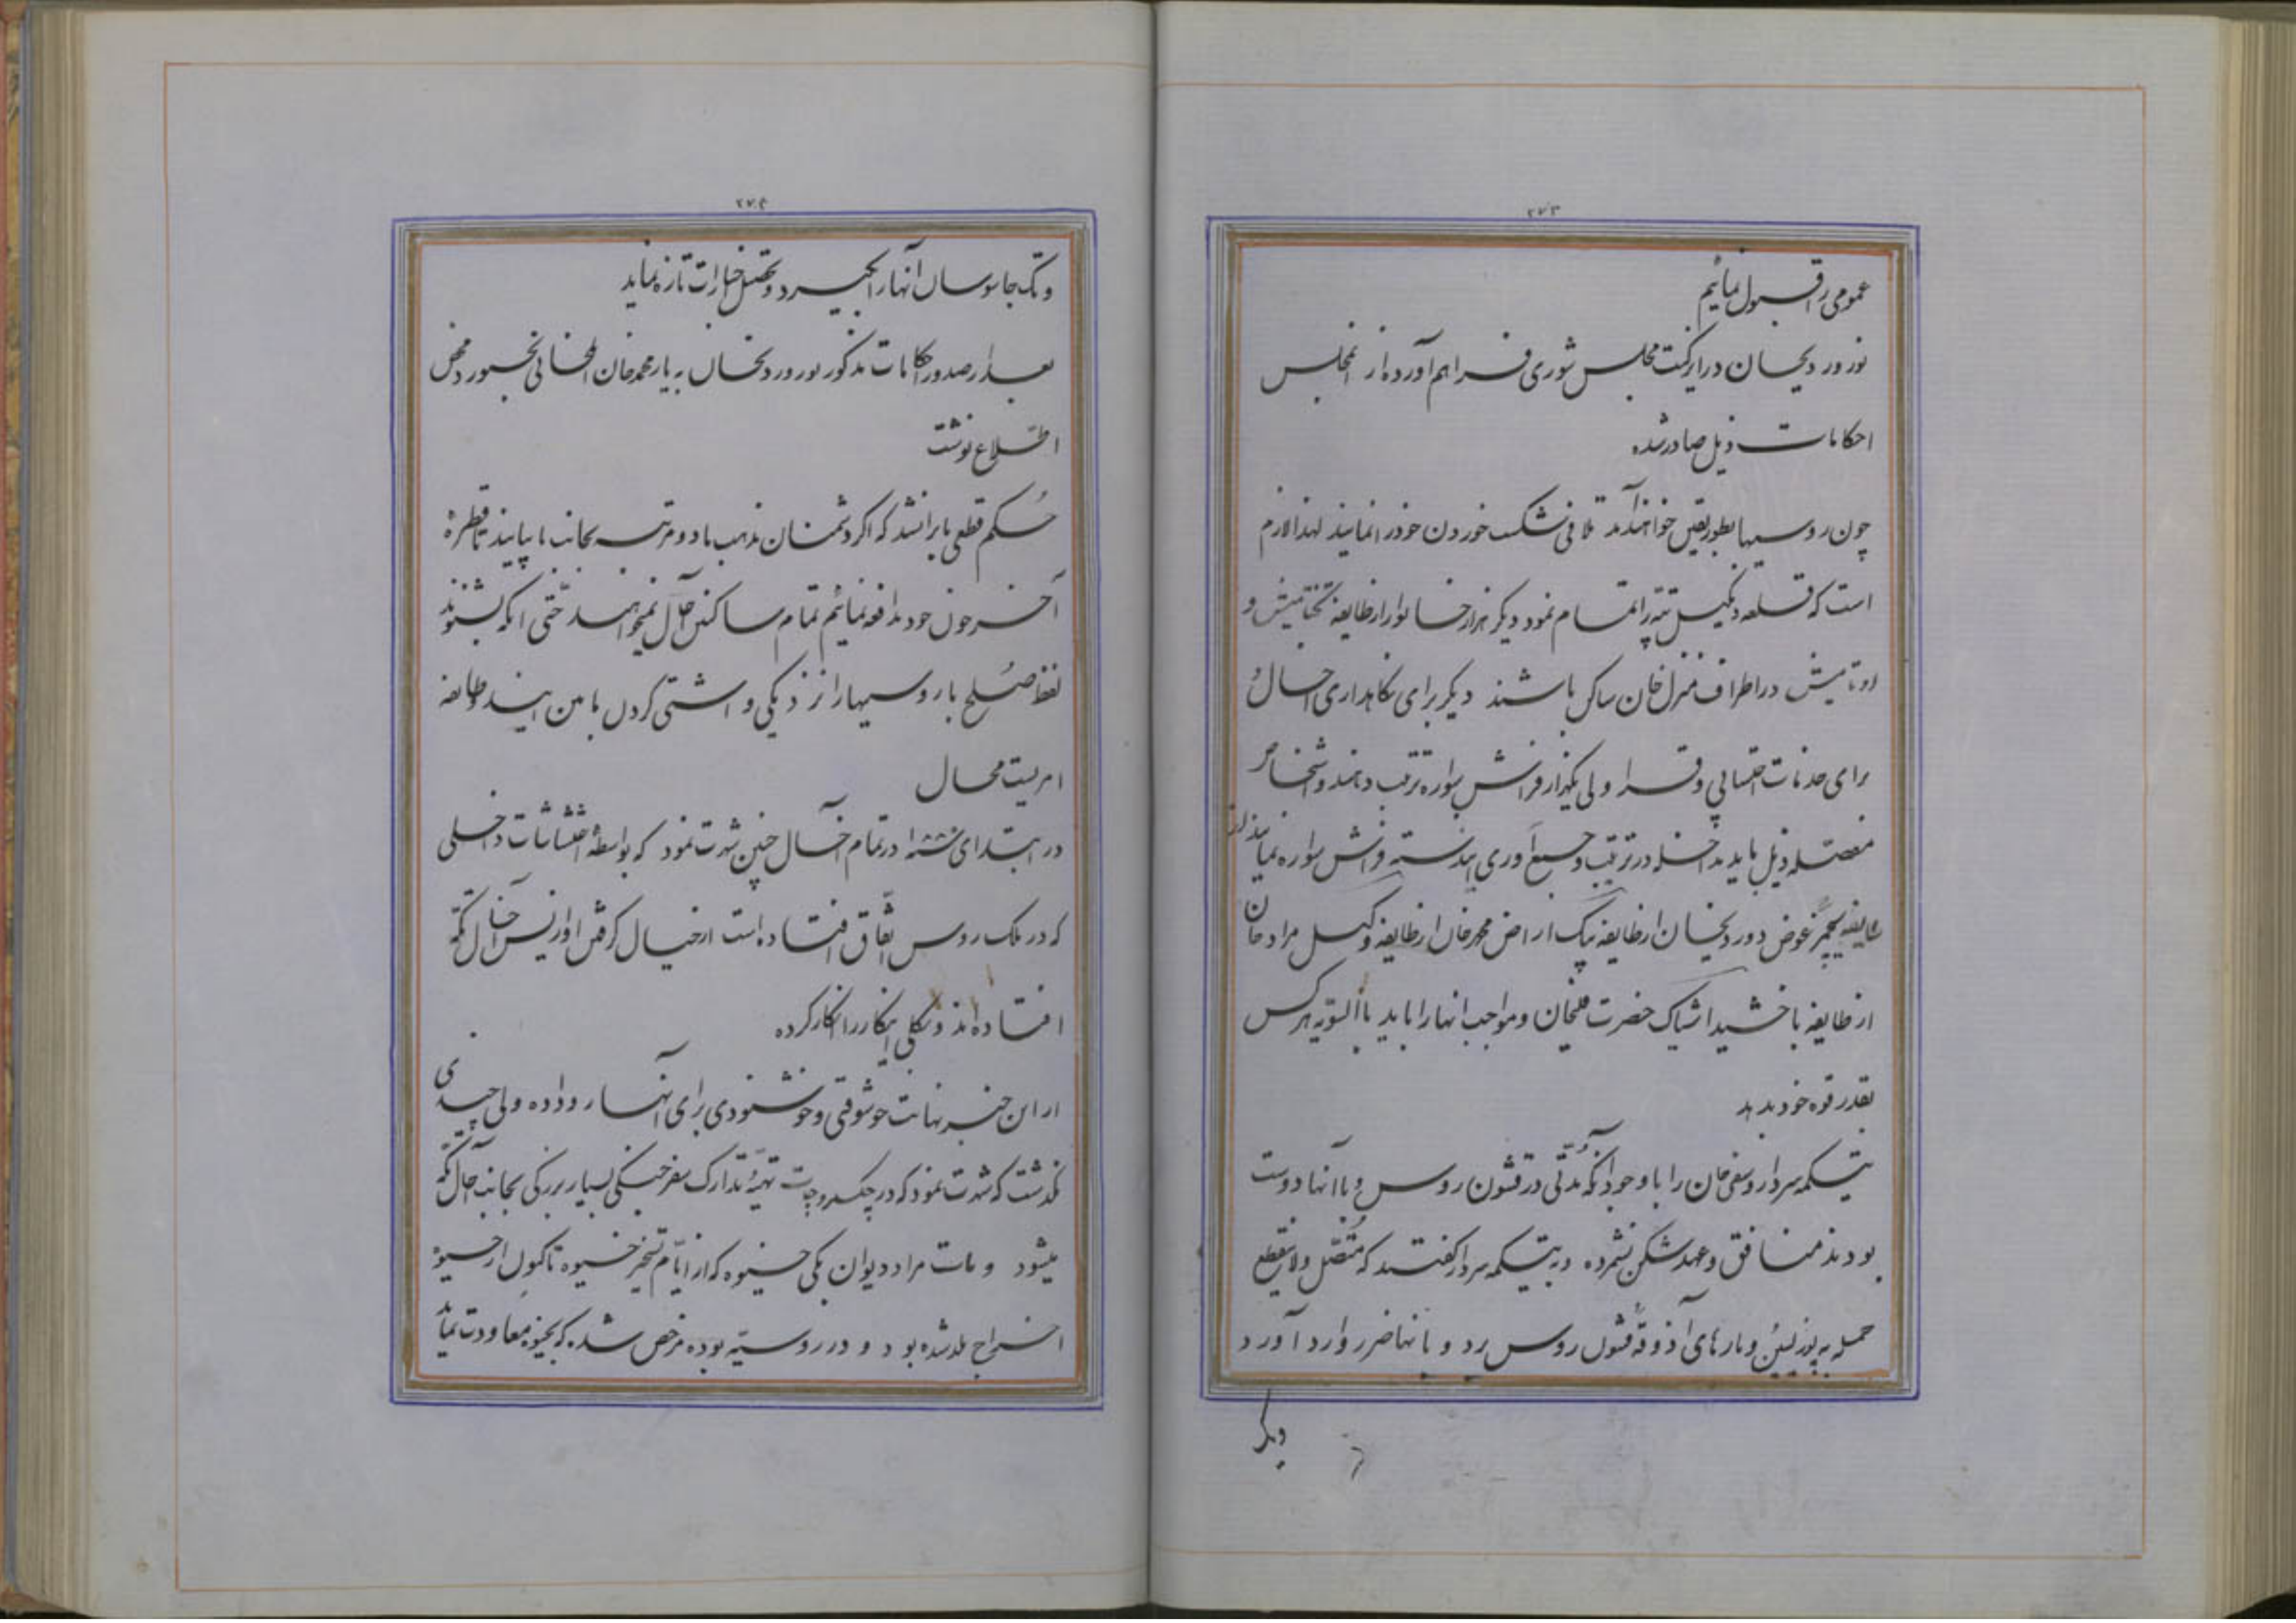 ۲۷۳
عمومی را قبول نمائیم
نور ورد یخان در این کت مجلس شوری فراهم آورده از انمجلس
احکامات ذیل صادر شده
چون روسیها بطور یقین خواهند آمد تلافی شکست خوردن خود را نمایند لهذا لازم
است که قلعه دنگیل تپه را تمام نمود دیگر هزار خانوار از طایفه تختامیش و
اوتامیش در اطراف منزل خان ساکن باشند دیگر برای نگاهداری اخال و
برای خدمات و قراولی یکهزار فراش سواره ترتیب دهند و اشخاص
مفصله ذیل باید مداخله در ترتیب و جمع آوری این دسته فراش سواره نمایند از
طایفه عوض دوردیخان از طایفه بیک اراض محمد خان از طایفه وکیل مراد خان
از طایفه حضرت قلیخان و مواجب انها را باید بالسّویه هر کس
بقدر قوه خود بدهد
تیکمه سردار و صفی خان را با وجود آنکه مدّتی در قشون روس و با آنها دوست
بودند منافق و عهد شکن نشمرده و به تیکمه سردار گفتند که متّصل و لاینقطع
حمله به و بارهای آذوقه قشون روس برد و بانها ضرر وارد آورد
دیگر
۲۷۴
و یک جاسوسان آنها را بگیرد و تحصیل اخبارات تازه نماید
بعد از صدور احکامات مذکور نور ورد یخان به یار محمد خان ایلخانی بجنورد محض
اطلاع نوشت
حکم قطعی ما بر این شد که اگر دشمنان مذهب ما دو مرتبه بجانب ما بیایند تا قطره
آخر خون خود مدافعه نمائیم تمام ساکنین اخال نمیخواهند حتّی اینکه بشنوند
لفظ صلح با روسیها را نزدیکی و اشتی کردن مابین این دو طایفه
امریست محال
در ابتدای سنه ۱۸۸۰ در تمام اخال چنین شهرت نمود که بواسطه اغتشاشات داخلی
که در ملک روس اتفاق افتاده است از خیال گرفتن اورنیس اخال تکّه
افتاده اند و بکلی اینکار را انکار کرده
از این خبر نهایت خوشوقتی و خوشنودی برای آنها رو داده ولی چندی
نگذشت که شهرت نمود که در چکشلر و چات تهیّه و تدارک سفر جنگی بسیار بزرگی بجانب اخال تکّه
میشود و مات مراد دیوان بکی خیوه که از ایّام تسخیر خیوه تاکنون از خیوه
اخراج بلد شده بود و در روسیّه بوده مرخص شده که بخیوه معاودت نماید